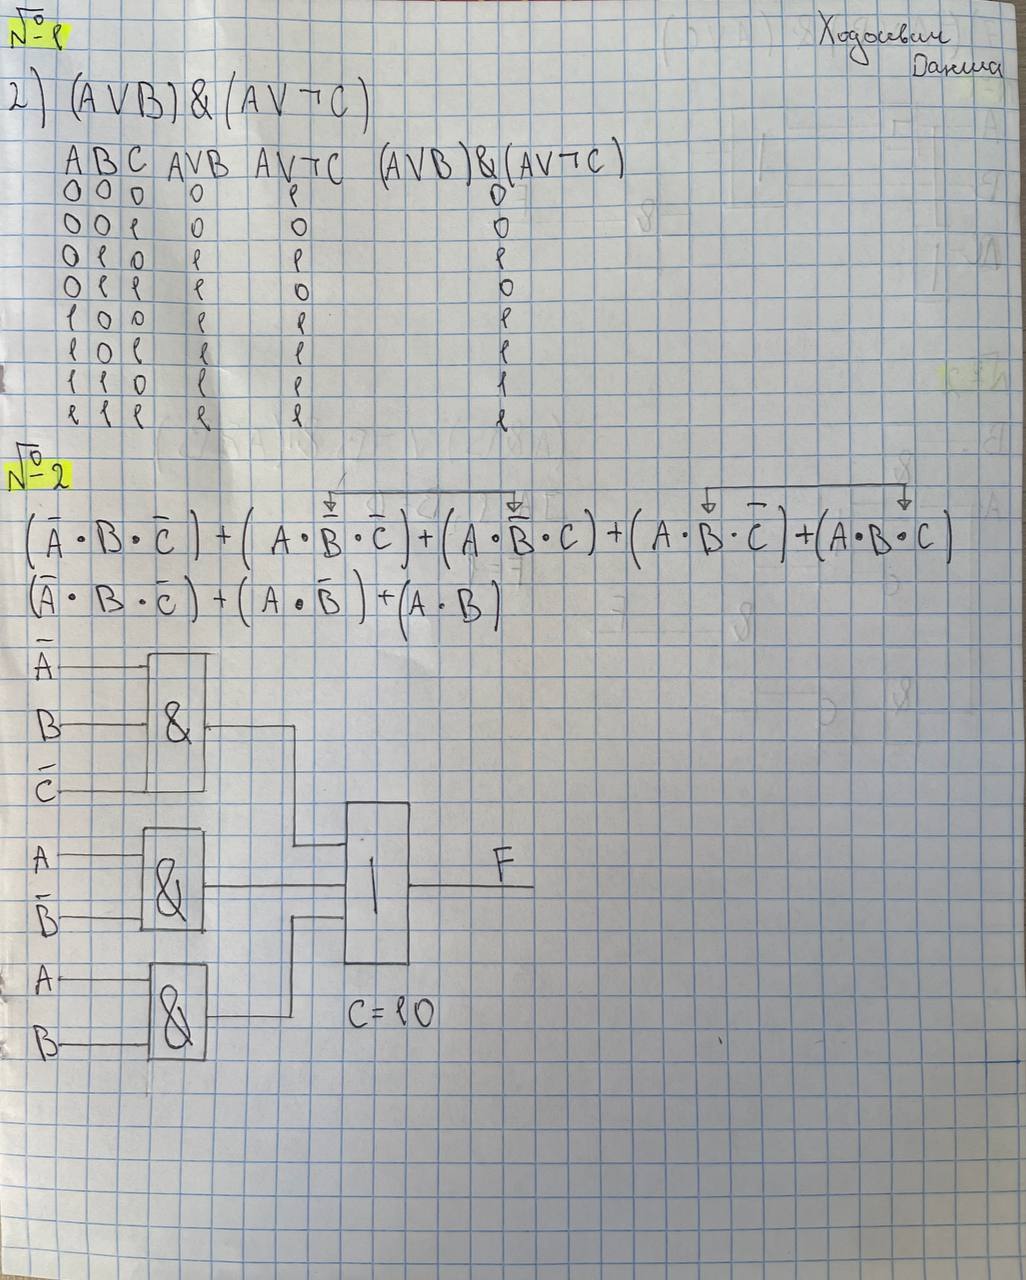 №1
Ходосевич
Данила
2) (A∨B)&(A∨¬C)
A B C A∨B A∨¬C (A∨B)&(A∨¬C)
0 0 0 0 1 0
0 0 1 0 0 0
0 1 0 1 1 1
0 1 1 1 0 0
1 0 0 1 1 1
1 0 1 1 1 1
1 1 0 1 1 1
1 1 1 1 1 1
№2
(A̅·B·C̅)+(A·B̅·C̅)+(A·B̅·C)+(A·B·C̅)+(A·B·C)
(A̅·B·C̅)+(A·B̅)+(A·B)
A̅
B
C̅
&
A
B̅
&
A
B
&
1
F
C=10